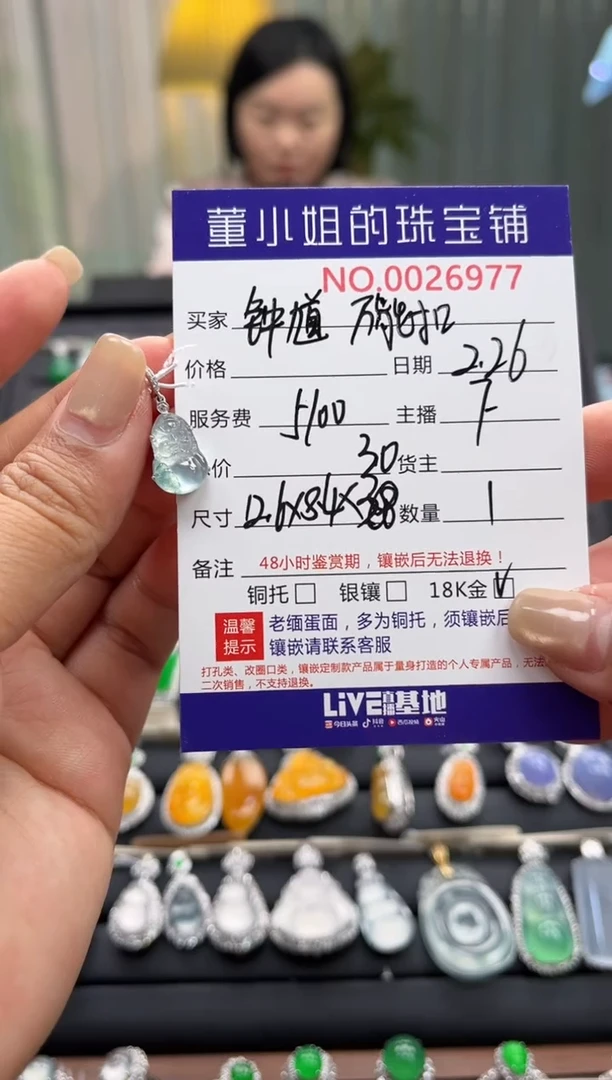 董小姐的珠宝铺
NO.0026977
买家 钟馗
价格 日期 2.26
服务费 5100 主播
价 30 货主
尺寸 12.6x8.4x3.8 数量 1
备注 48小时鉴赏期，镶嵌后无法退换！
铜托□ 银镶□ 18K金☑
温馨提示
老缅蛋面，多为铜托，须镶嵌后
镶嵌请联系客服
打孔类、改圈口类，镶嵌定制款产品属于量身打造的个人专属产品，无法
二次销售，不支持退换。
LiVE直播基地
今日头条 抖音 西瓜视频 火山